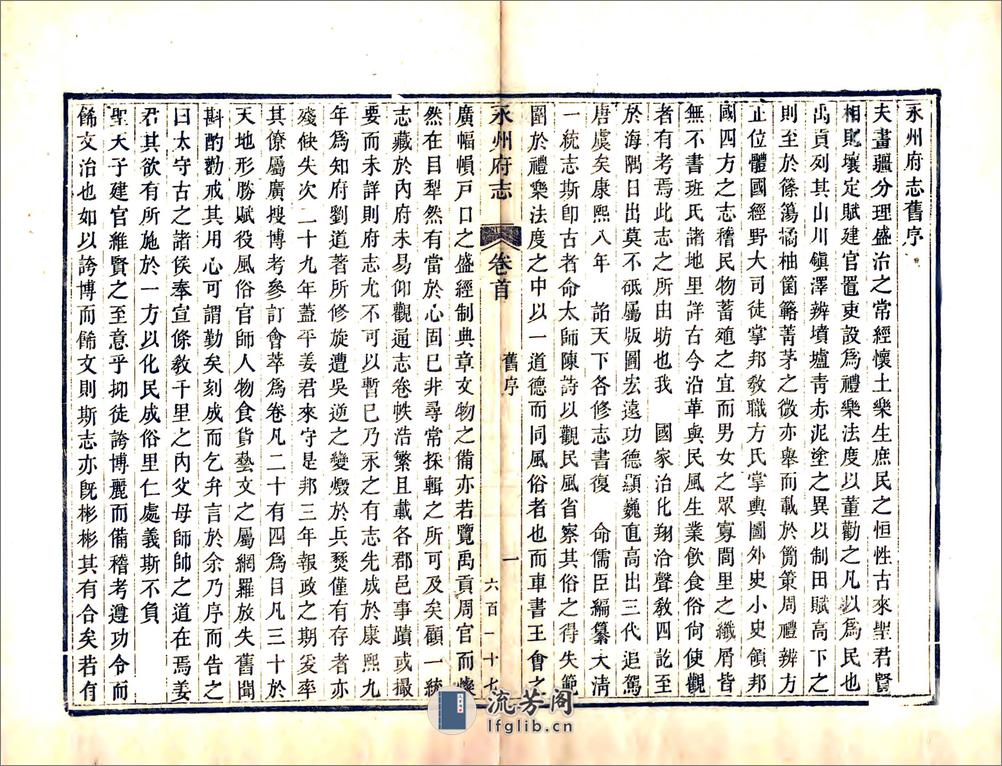 永州府志舊序
夫畫疆分理盛治之常經懷土樂生庶民之恒性古來聖君賢
相則壤定賦建官置吏設爲禮樂法度以董勸之凡以爲民也
禹貢列其山川鎮澤辨墳壚青赤泥塗之異以制田賦高下之
則至於篠簜橘柚箘簵菁茅之微亦舉而載於簡策周禮辨方
正位體國經野大司徒掌邦敎職方氏掌輿圖外史小史領邦
國四方之志稽民物蓄殖之宜而男女之眾寡閭里之纖屑皆
無不書班氏諸地里詳古今沿革與民風生業飲食俗尙使觀
者有考焉此志之所由昉也我　國家治化翔洽聲敎四訖至
於海隅日出莫不砥屬版圖宏遠功德顯巍直高出三代追駕
唐虞矣康熙八年　詔天下各修志書復　命儒臣編纂大清
一統志斯卽古者命太師陳詩以觀民風省察其俗之得失範
圍於禮樂法度之中以一道德而同風俗者也而車書王會之
永州府志　卷首　舊序　一　六百一十七
廣幅幀戸口之盛經制典章文物之備亦若覽禹貢周官而燦
然在目犁然有當於心固已非尋常採輯之所可及矣顧一統
志藏於內府未易仰觀通志卷帙浩繁且載各郡邑事蹟或撮
要而未詳則府志尤不可以暫已乃永之有志先成於康熙九
年爲知府劉道著所修旋遭吳逆之變燬於兵燹僅有存者亦
殘缺失次二十九年蓋平姜君來守是邦三年報政之期爰率
其僚屬廣搜博考參訂會萃爲卷凡二十有四爲目凡三十於
天地形勝賦役風俗官師人物食貨藝文之屬網羅放失舊聞
斟酌勸戒其用心可謂勤矣刻成而乞弁言於余乃序而告之
曰太守古之諸侯奉宣條敎千里之內父母師帥之道在焉姜
君其欲有所施於一方以化民成俗里仁處義斯不負
聖天子建官維賢之至意乎抑徒誇博麗而備稽考遵功令而
餙文治也如以誇博而餙文則斯志亦旣彬彬其有合矣若有
流芳阁
lfglib.cn